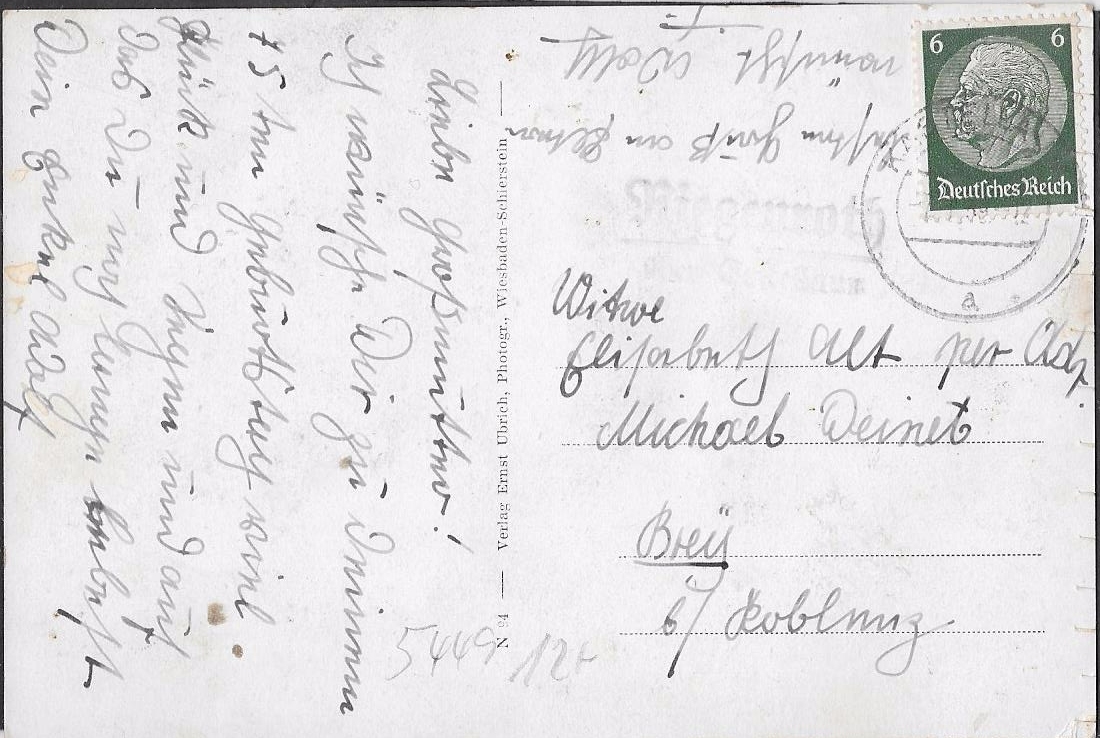 Liebe Großmutter!
Ich wünsche Dir zu Deinem
75ten Geburtstag viel
Glück und Segen und auch
daß Du noch lange lebest
Dein Enkel Adolf
N 94 — Verlag Ernst Ubrich, Photogr., Wiesbaden-Schierstein —
Gruß an
wünscht Adolf
6 6
Deutsches Reich
a
Witwe
Elisabeth Alt per Adr.
Michael Deinet
Breÿ
b/ Koblenz
5449 12